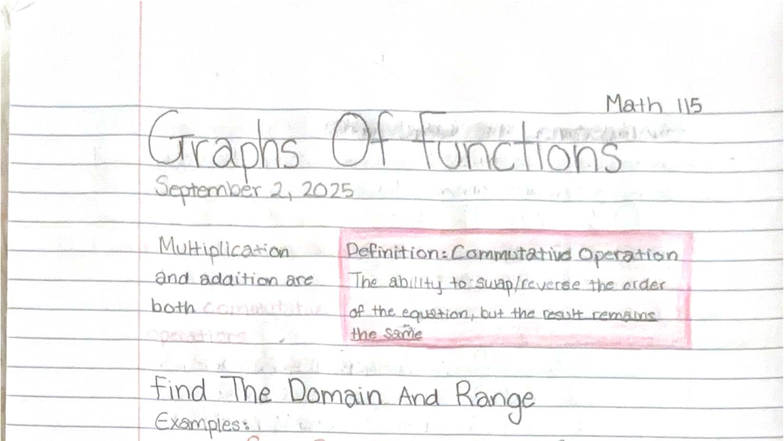 Math 115
Graphs Of functions
September 2, 2025
Multiplication
and addition are
both commutative
operations
Definition: Commutative Operation
The ability to swap/reverse the order
of the equation, but the result remains
the same
find The Domain And Range
Examples: